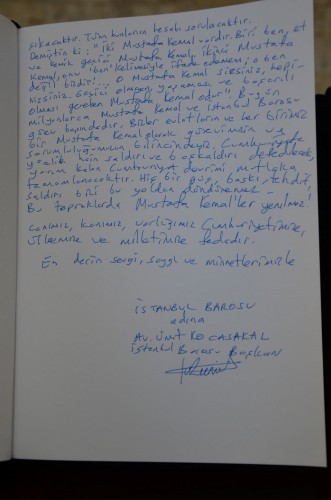 çıkacaktır. Tüm bunların hesabı sorulacaktır.
Demiştin ki: "İki Mustafa Kemal vardır. Biri ben, et
ve kemik, geçici Mustafa Kemal, ikinci Mustafa
Kemal, onu 'ben' kelimesiyle ifade edemem; o ben
değil bizdir!... O Mustafa Kemal sizsiniz, hepi-
nizsiniz. Geçici olmayan, yaşaması ve başarılı
olması gereken Mustafa Kemal odur." Bugün
milyonlarca Mustafa Kemal ve İstanbul Barosu
görev başındadır. Bizler evlatların ve her birimiz
bir Mustafa Kemal olarak görevimizin ve
sorumluluğumuzun bilincindeyiz. Cumhuriyete
yönelik tüm saldırı ve başkaldırı defedilecek,
yarım kalan Cumhuriyet devrimi mutlaka
tamamlanacaktır. Hiç bir güç, baskı, tehdit,
saldırı bizi bu yoldan döndüremez!
Bu topraklarda Mustafa Kemal'ler yenilmez!
canımız, kanımız, varlığımız Cumhuriyetimize,
ülkemize ve milletimize fedadır.
En derin sevgi, saygı ve minnetlerimizle
İSTANBUL BAROSU
adına
Av. ÜMİT KOCASAKAL
İstanbul Barosu Başkanı